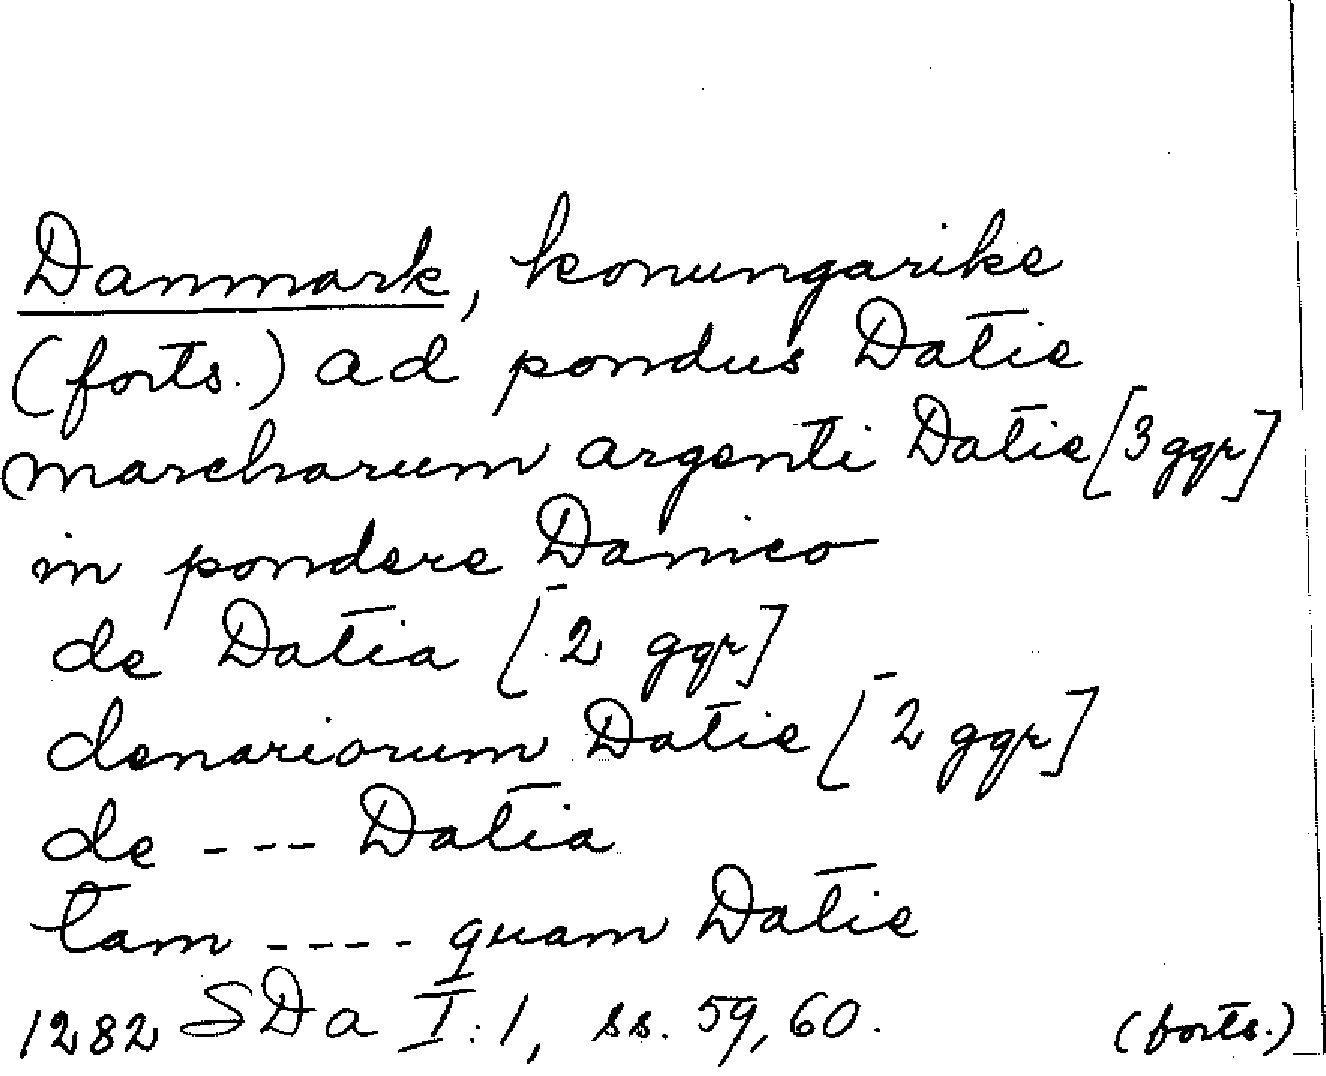 Danmark, konungarike
(forts.) ad pondus Datie
marcharum argenti Datie [3 ggr]
in pondere Danico
de Datia [2 ggr]
denariorum Datie [2 ggr]
de --- Datia
tam ---- quam Datie
1282 SDa I:1, ss. 59, 60. (forts.)